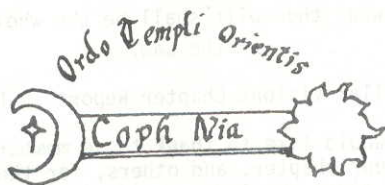 Ordo Templi Orientis
Coph Nia